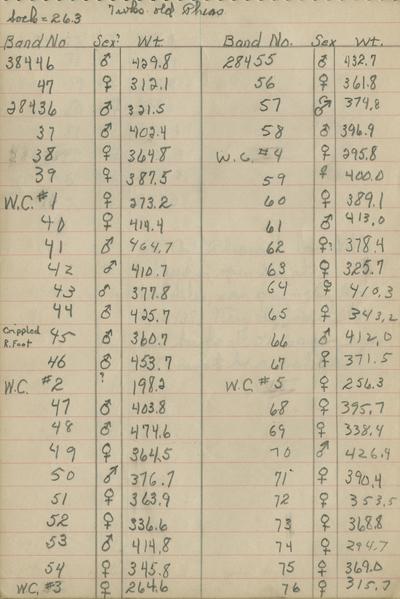 Sock = 26.3 7 wks. old Pheas
Band No Sex? Wt.
38446 ♂ 429.8
47 ♀ 312.1
28436 ♂ 321.5
37 ♂ 402.4
38 ♀ 364.8
39 ♀ 387.5
W.C. #1 ♀ 273.2
40 ♀ 414.4
41 ♂ 464.7
42 ♂ 410.7
43 ♂ 377.8
44 ♂ 425.7
Crippled R. Foot 45 ♂ 360.7
46 ♂ 453.7
W.C. #2 ? 198.2
47 ♂ 403.8
48 ♂ 474.6
49 ♀ 364.5
50 ♂ 376.7
51 ♀ 363.9
52 ♀ 336.6
53 ♂ 414.8
54 ♀ 345.8
W.C. #3 ♀ 264.6
Band No. Sex Wt.
28455 ♂ 432.7
56 ♀ 361.8
57 ♂ 374.8
58 ♂ 396.9
W.C. #4 ♀ 295.8
59 ♀ 400.0
60 ♀ 389.1
61 ♂ 413.0
62 ♀? 378.4
63 ♀ 325.7
64 ♀ 410.3
65 ♀ 343.2
66 ♂ 412.0
67 ♀ 371.5
W.C. #5 ♀ 256.3
68 ♀ 395.7
69 ♀ 338.4
70 ♂ 426.9
71 ♀ 390.4
72 ♀ 353.5
73 ♀ 368.8
74 ♀ 294.7
75 ♀ 369.0
76 ♀ 315.7